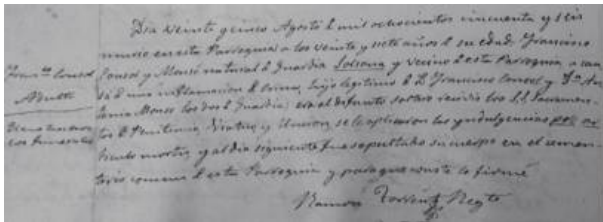 Dia veinte y cinco Agosto de mil ochocientos cincuenta y seis
murio en esta Parroquia a los veinte y siete años de su edad, Francisco
Consol y Monsó natural de Guardia Solsona y vecino de esta Parroquia a cau
sa de una inflamacion de hijo legitimo de D. Francisco Consol y Dª An
tonia Monso los dos de Guardia: era el difunto soltero recivio los S.S. Sacramen
tos de Penitencia, Viatico, y Uncion, se le aplicaron las yndulgencias ar
ticulo mortis, y al dia siguiente fue sepultado su cuerpo en el cemen
terio comun de esta Parroquia y para que conste lo firmé
Ramon Torrent Regte
Franco Consol
Adulto
con funerales